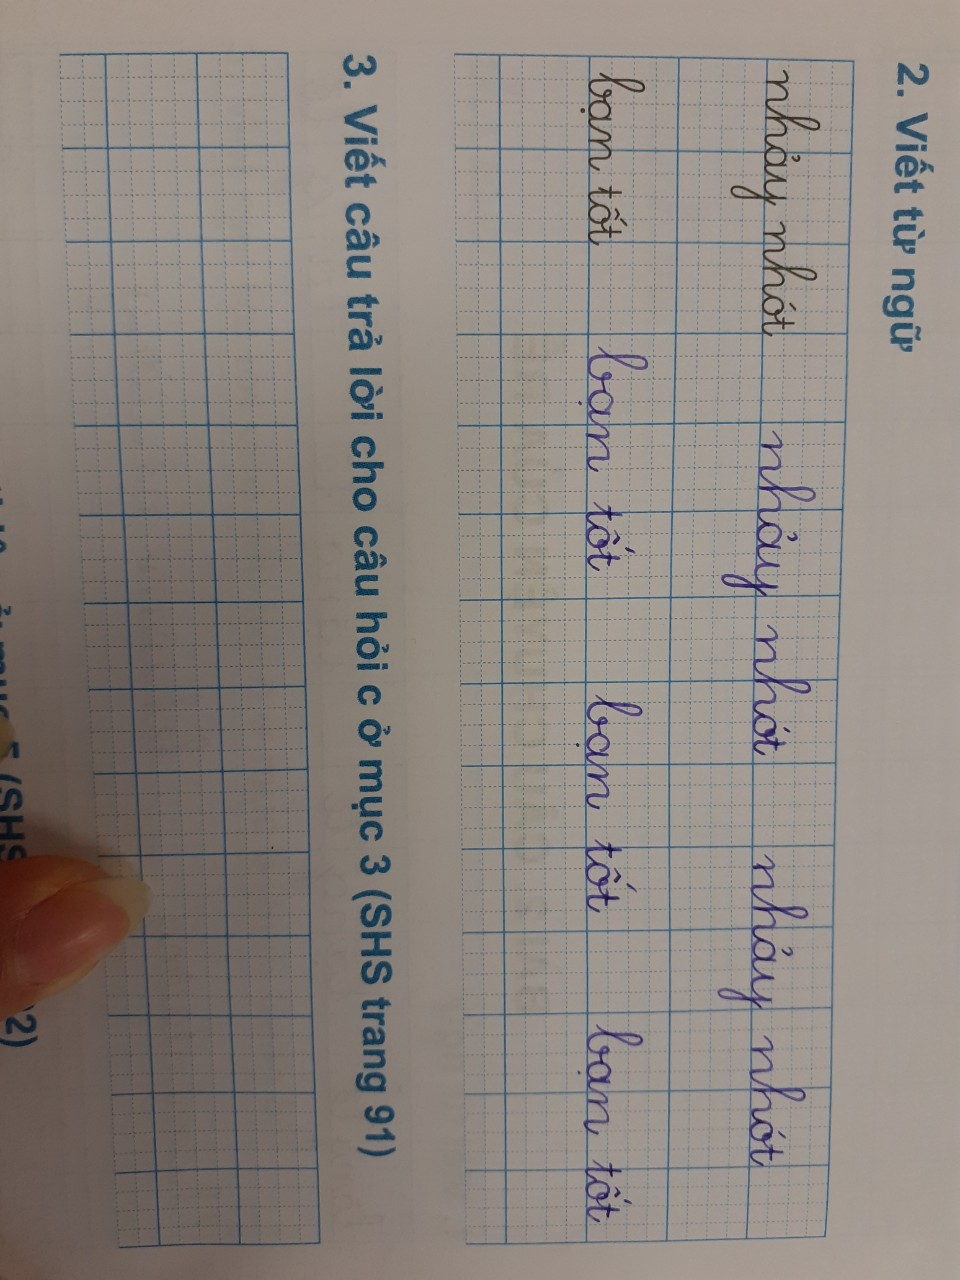 2. Viết từ ngữ
nhảy nhót nhảy nhót nhảy nhót
bạn tốt bạn tốt bạn tốt bạn tốt
3. Viết câu trả lời cho câu hỏi c ở mục 3 (SHS trang 91)
mục 5 (SHS